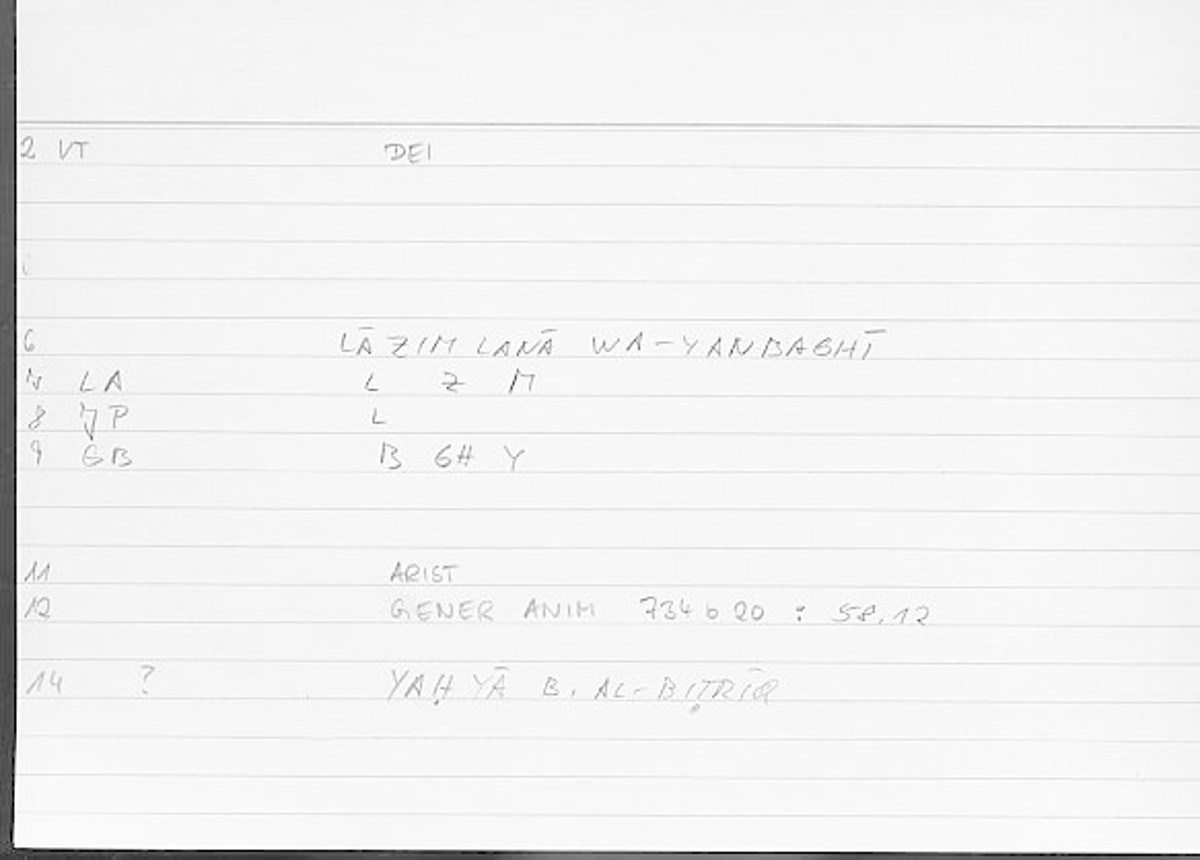 2 VT DEI
6 LĀZIM LANĀ WA-YANBAGHĪ
7 LA L Z M
8 JP L
9 GB B GH Y
11 ARIST
12 GENER ANIM 734 b 20 : 58.12
14 ? YAḤYĀ B. AL-BIṬRĪQ